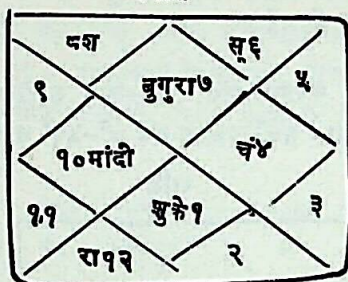 ८श सू६
९ बुगुरा७ ५
१०मांदी चं४
११ शुके१ ३
रा१२ २